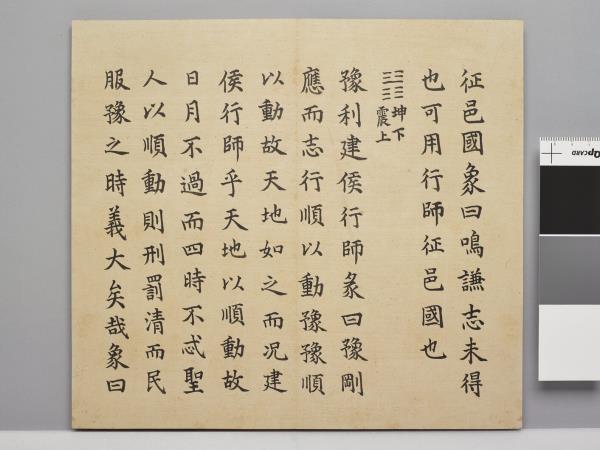 征邑國象曰鳴謙志未得
也可用行師征邑國也
坤下
震上
豫利建侯行師彖曰豫剛
應而志行順以動豫豫順
以動故天地如之而况建
侯行師乎天地以順動故
日月不過而四時不忒聖
人以順動則刑罰清而民
服豫之時義大矣哉象曰